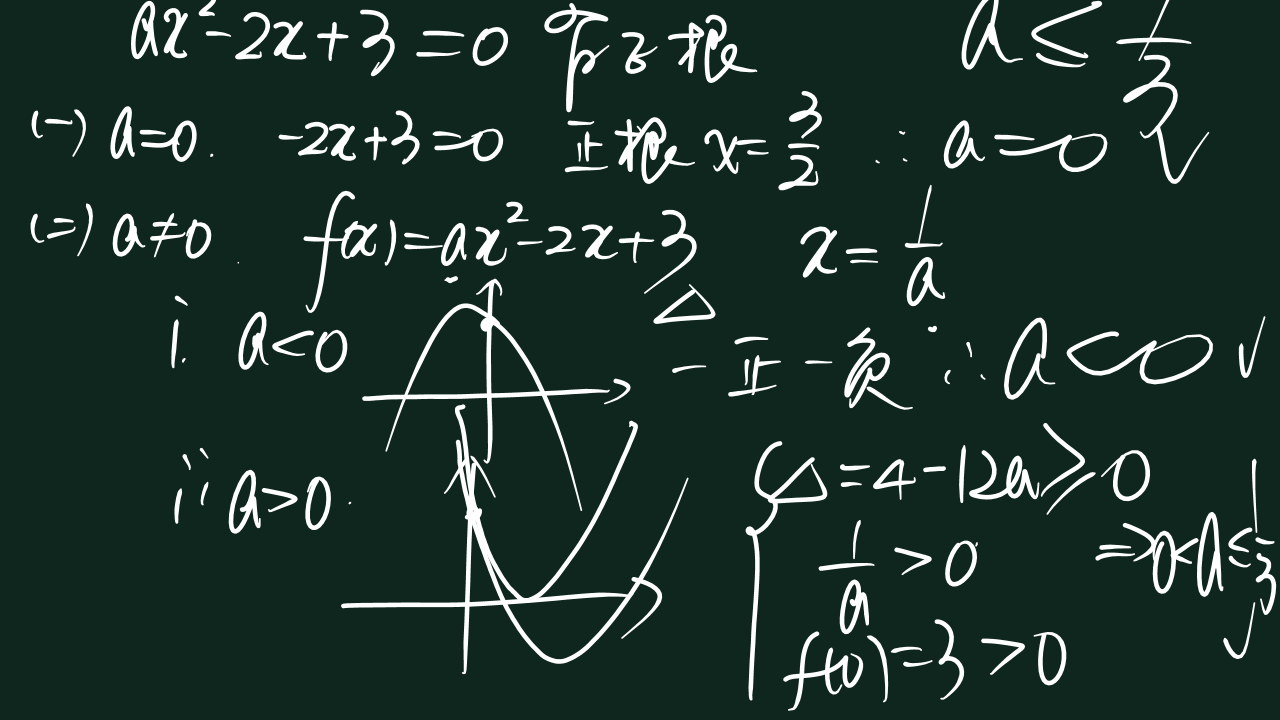 ax²-2x+3=0 有正根 a≤1/3
(一) a=0. -2x+3=0 正根 x=3/2 ∴ a=0 √
(二) a≠0. f(x)=ax²-2x+3 x=1/a
△
i. a<0 一正一负 ∴ a<0 √
ii a>0. △=4-12a≥0
1/a>0 ⇒0<a≤1/3 √
f(0)=3>0